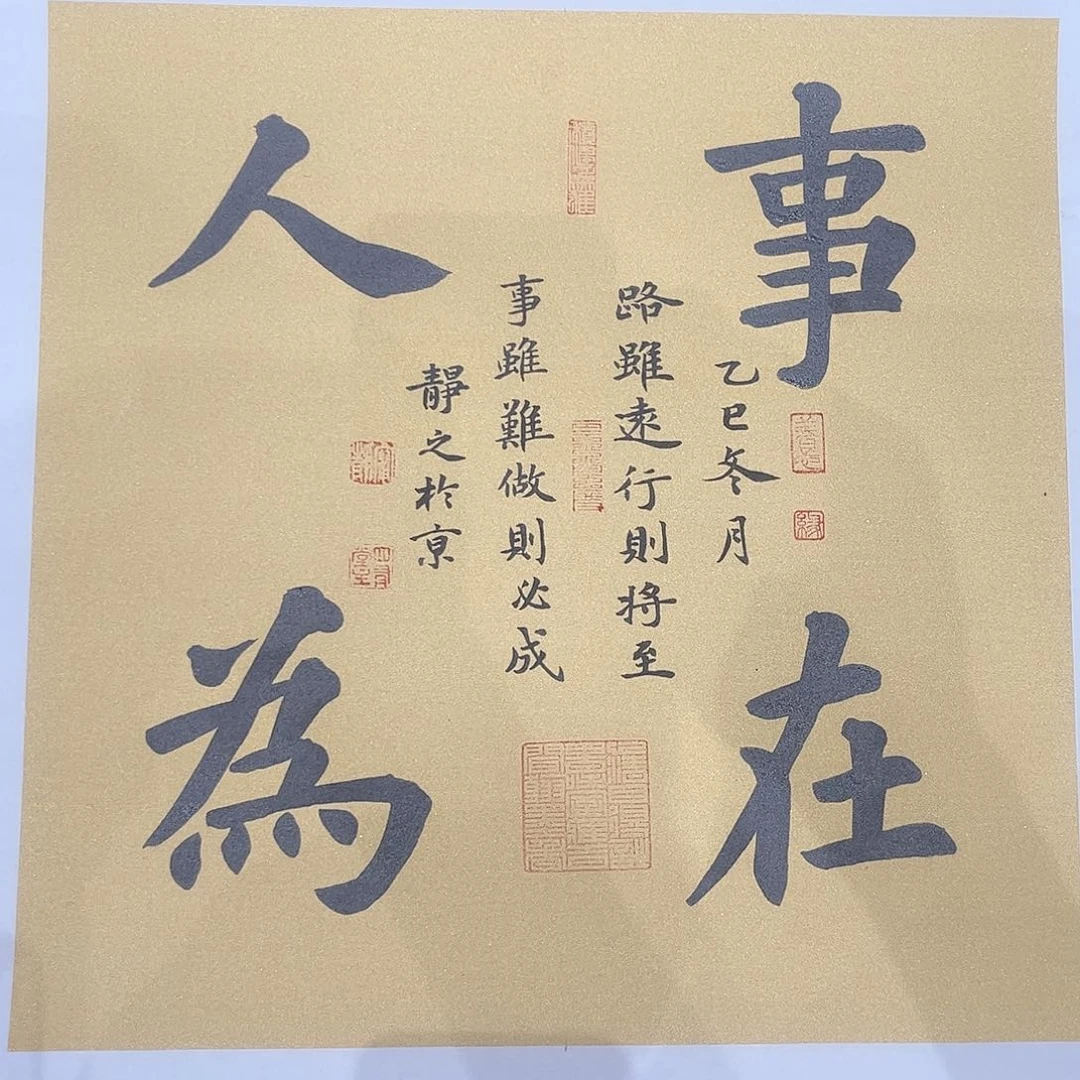 事在
人為
乙巳冬月
路雖遠行則将至
事雖難做則必成
靜之於京
緣